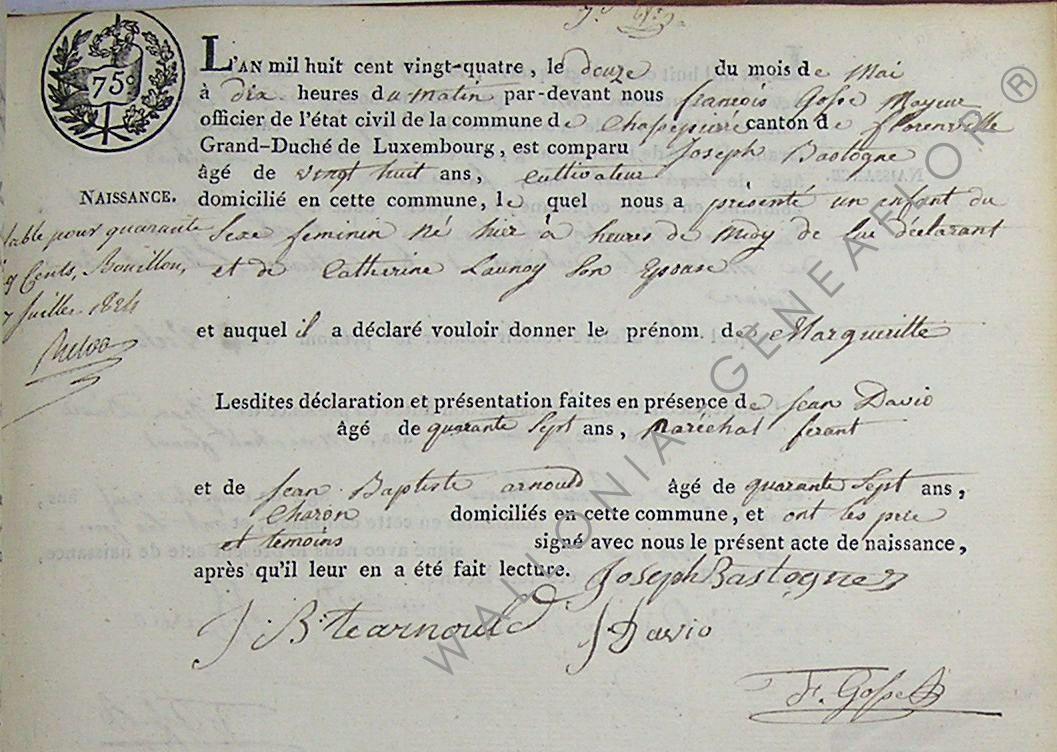 75c
L'AN mil huit cent vingt-quatre, le douze du mois de Mai
à dix heures du matin par-devant nous françois Gosse Mayeur
officier de l'état civil de la commune de Chassepierre canton de florenville
Grand-Duché de Luxembourg, est comparu Joseph Bastogne
âgé de vingt huit ans, cultivateur
NAISSANCE.
domicilié en cette commune, le quel nous a présenté un enfant du
Sexe feminin né hier à heures de Midy de Lui déclarant
et de Catherine Launoy Son Epouse
table pour quarante
Cents, Bouillon,
Juillet 1824
et auquel il a déclaré vouloir donner le prénom de Margueritte
Lesdites déclaration et présentation faites en présence de Jean David
âgé de quarante Sept ans, Maréchal ferant
et de Jean Baptiste arnould âgé de quarante Sept ans,
Charon domiciliés en cette commune, et ont les
et témoins signé avec nous le présent acte de naissance,
après qu'il leur en a été fait lecture.
Joseph Bastogne
J B.te arnould
J David
F. Gosse
WALLONIA GENEAFLOR ®